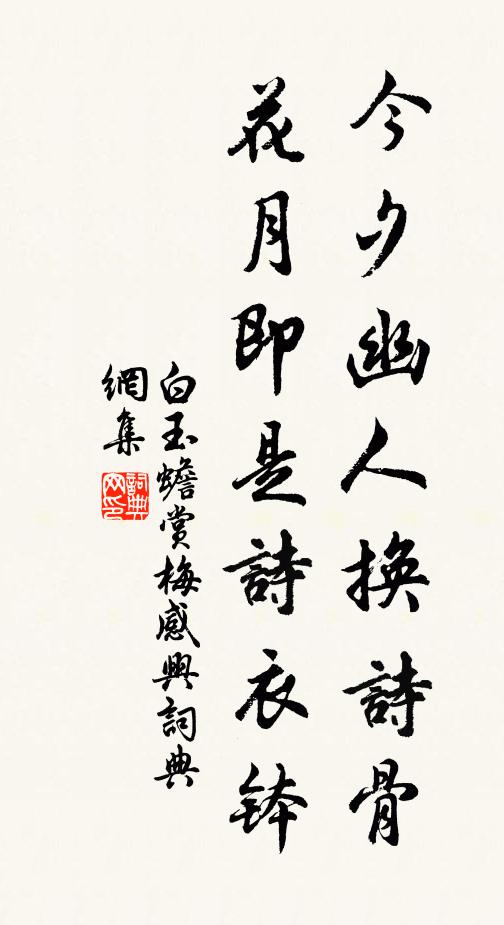 今夕幽人換詩骨
花月即是詩衣鉢
白玉蟾賞梅感興詞典
網集
詞典
网印